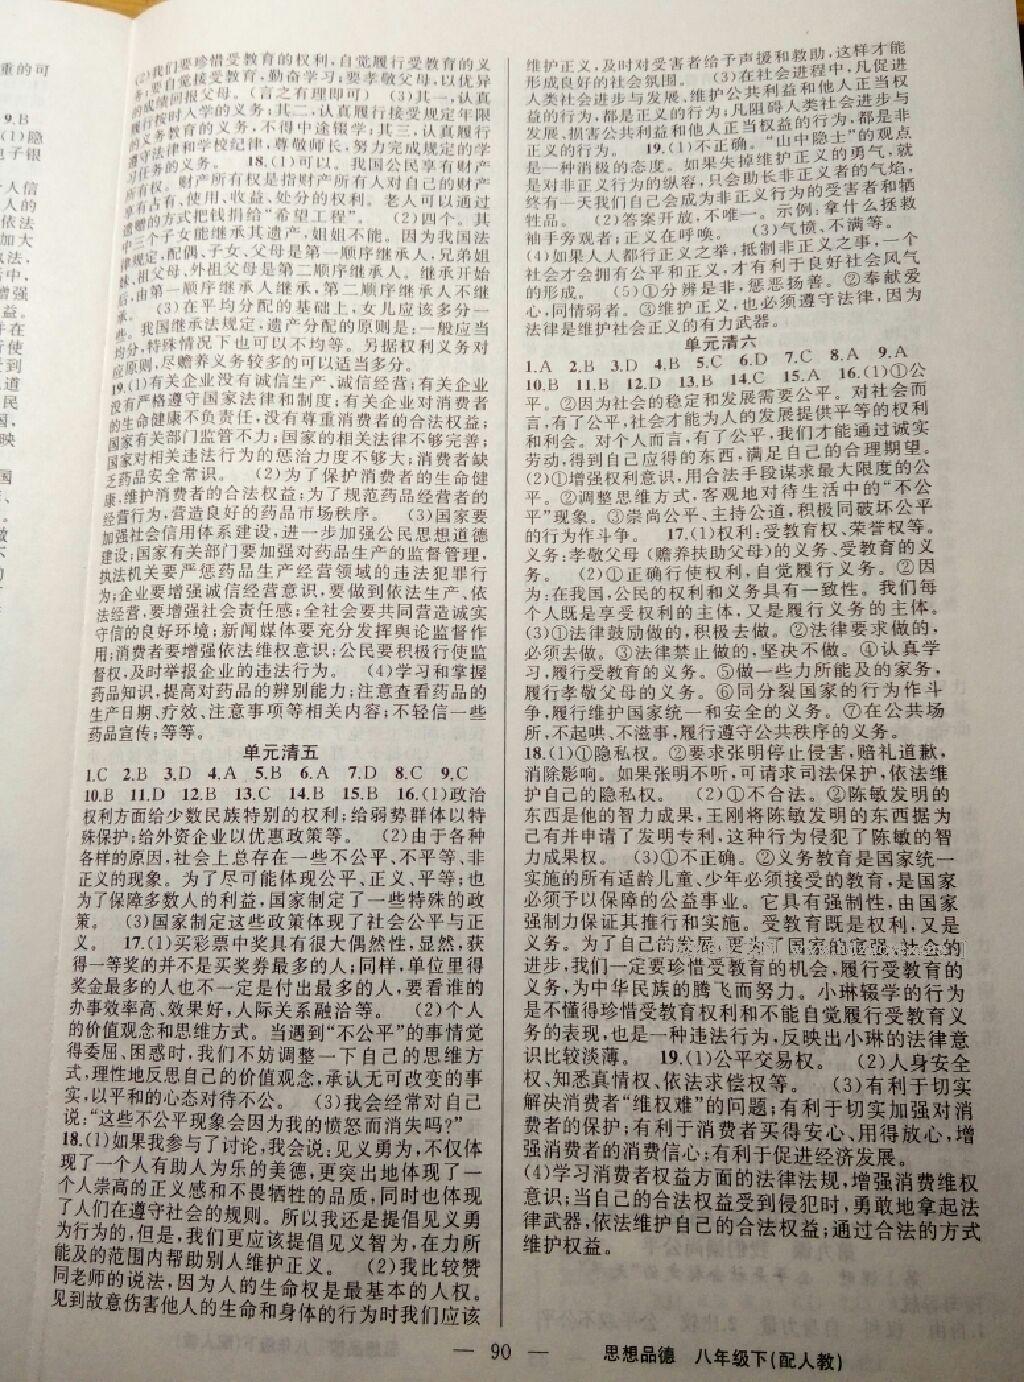 重的可
9.B
(1)隐
电子银
个人信
人的
依法
加大
执法、
增强
益。
并在
行使
受到
道
民
国,
映
国
(2)我们要珍惜受教育的权利,自觉履行受教育的义
务;要自觉接受教育,勤奋学习;要孝敬父母,以优异
的成绩回报父母。(言之有理即可) (3)其一,认真
履行按时入学的义务;其二,认真履行接受规定年限
的义务教育的义务,不得中途辍学;其三,认真履行
遵守法律和学校纪律,尊敬师长,努力完成规定的学
习任务的义务。 18.(1)可以。我国公民享有财产
所有权。财产所有权是指财产所有人对自己的财产
享有占有、使用、收益、处分的权利。老人可以通过
遗赠的方式把钱捐给“希望工程”。 (2)四个。其
中三个子女能继承其遗产,姐姐不能。因为我国法
律规定,配偶、子女、父母是第一顺序继承人,兄弟姐
妹、祖父母、外祖父母是第二顺序继承人。继承开始
后,由第一顺序继承人继承,第二顺序继承人不继
承。 (3)在平均分配的基础上,女儿应该多分一
些。我国继承法规定,遗产分配的原则是:一般应当
均分,特殊情况下也可以不均等。另据权利义务对
应原则,尽赡养义务较多的可以适当多分。
19.(1)有关企业没有诚信生产、诚信经营;有关企业
没有严格遵守国家法律和制度;有关企业对消费者
的生命健康不负责任,没有尊重消费者的合法权益;
国家有关部门监管不力;国家的相关法律不够完善;
国家对相关违法行为的惩治力度不够大;消费者缺
乏药品安全常识。 (2)为了保护消费者的生命健
康,维护消费者的合法权益;为了规范药品经营者的
经营行为,营造良好的药品市场秩序。 (3)国家要
加强社会信用体系建设,进一步加强公民思想道德
建设;国家有关部门要加强对药品生产的监督管理,
执法机关要严惩药品生产经营领域的违法犯罪行
为;企业要增强诚信经营意识,要做到依法生产、依
法经营,要增强社会责任感;全社会要共同营造诚实
守信的良好环境;新闻媒体要充分发挥舆论监督作
用;消费者要增强依法维权意识;公民要积极行使监
督权,及时举报企业的违法行为。 (4)学习和掌握
药品知识,提高对药品的辨别能力;注意查看药品的
生产日期、疗效、注意事项等相关内容;不轻信一些
药品宣传;等等。
单元清五
1.C 2.B 3.D 4.A 5.B 6.A 7.D 8.C 9.C
10.B 11.D 12.B 13.C 14.B 15.B 16.(1)政治
权利方面给少数民族特别的权利;给弱势群体以特
殊保护;给外资企业以优惠政策等。 (2)由于各种
各样的原因,社会上总存在一些不公平、不平等、非
正义的现象。为了尽可能体现公平、正义、平等;也
为了保障多数人的利益,国家制定了一些特殊的政
策。 (3)国家制定这些政策体现了社会公平与正
义。 17.(1)买彩票中奖具有很大偶然性,显然,获
得一等奖的并不是买奖券最多的人;同样,单位里得
奖金最多的人也不一定是付出最多的人,要看谁的
办事效率高、效果好,人际关系融洽等。 (2)个人
的价值观念和思维方式。当遇到“不公平”的事情觉
得委屈、困惑时,我们不妨调整一下自己的思维方
式,理性地反思自己的价值观念,承认无可改变的事
实,以平和的心态对待不公。 (3)我会经常对自己
说:“这些不公平现象会因为我的愤怒而消失吗?”
18.(1)如果我参与了讨论,我会说:见义勇为,不仅体
现了一个人有助人为乐的美德,更突出地体现了一
个人崇高的正义感和不畏牺牲的品质,同时也体现
了人们在遵守社会的规则。所以我还是提倡见义勇
为行为的,但是,我们更应该提倡见义智为,在力所
能及的范围内帮助别人维护正义。 (2)我比较赞
同老师的说法,因为人的生命权是最基本的人权。
见到故意伤害他人的生命和身体的行为时我们应该
维护正义,及时对受害者给予声援和救助,这样才能
形成良好的社会氛围。 (3)在社会进程中,凡促进
人类社会进步与发展、维护公共利益和他人正当权
益的行为,都是正义的行为;凡阻碍人类社会进步与
发展、损害公共利益和他人正当权益的行为,都是非
正义的行为。 19.(1)不正确。“山中隐士”的观点
是一种消极的态度。如果失掉维护正义的勇气,就
是对非正义行为的纵容,只会助长非正义者的气焰,
终有一天我们自己会成为非正义行为的受害者和牺
牲品。 (2)答案开放,不唯一。示例:拿什么拯救
袖手旁观者;正义在呼唤。 (3)气愤、不满等。
(4)如果人人都行正义之举,抵制非正义之事,一个
社会才会拥有公平和正义,才有利于良好社会风气
的形成。 (5)①分辨是非,惩恶扬善。②奉献爱
心,同情弱者。③维护正义,也必须遵守法律,因为
法律是维护社会正义的有力武器。
单元清六
1.A 2.B 3.D 4.B 5.C 6.D 7.C 8.A 9.A
10.B 11.B 12.D 13.B 14.C 15.A 16.(1)①公
平。②因为社会的稳定和发展需要公平。对社会而
言,有了公平,社会才能为人的发展提供平等的权利
和利会。对个人而言,有了公平,我们才能通过诚实
劳动,得到自己应得的东西,满足自己的合理期望。
(2)①增强权利意识,用合法手段谋求最大限度的公
平。②调整思维方式,客观地对待生活中的“不公
平”现象。③崇尚公平、主持公道,积极同破坏公平
的行为作斗争。 17.(1)权利:受教育权、荣誉权等。
义务:孝敬父母(赡养扶助父母)的义务、受教育的义
务。 (2)①正确行使权利,自觉履行义务。②因
为:在我国,公民的权利和义务具有一致性。我们每
个人既是享受权利的主体,又是履行义务的主体。
(3)①法律鼓励做的,积极去做。②法律要求做的,
必须去做。③法律禁止做的,坚决不做。④认真学
习,履行受教育的义务。⑤做一些力所能及的家务,
履行孝敬父母的义务。⑥同分裂国家的行为作斗
争,履行维护国家统一和安全的义务。⑦在公共场
所,不起哄、不滋事,履行遵守公共秩序的义务。
18.(1)①隐私权。②要求张明停止侵害,赔礼道歉,
消除影响。如果张明不听,可请求司法保护,依法维
护自己的隐私权。 (2)①不合法。②陈敏发明的
东西是他的智力成果,王刚将陈敏发明的东西据为
己有并申请了发明专利,这种行为侵犯了陈敏的智
力成果权。 (3)①不正确。②义务教育是国家统一
实施的所有适龄儿童、少年必须接受的教育,是国家
必须予以保障的公益事业。它具有强制性,由国家
强制力保证其推行和实施。受教育既是权利,又是
义务。为了自己的发展,更为了国家的富强、社会的
进步,我们一定要珍惜受教育的机会,履行受教育的
义务,为中华民族的腾飞而努力。小琳辍学的行为
是不懂得珍惜受教育权利和不能自觉履行受教育义
务的表现,也是一种违法行为,反映出小琳的法律意
识比较淡薄。 19.(1)公平交易权。 (2)人身安全
权、知悉真情权、依法求偿权等。 (3)有利于切实
解决消费者“维权难”的问题;有利于切实加强对消
费者的保护;有利于消费者买得安心、用得放心,增
强消费者的消费信心;有利于促进经济发展。
(4)学习消费者权益方面的法律法规,增强消费维权
意识;当自己的合法权益受到侵犯时,勇敢地拿起法
律武器,依法维护自己的合法权益;通过合法的方式
维护权益。
— 90 — 思想品德 八年级下(配人教)